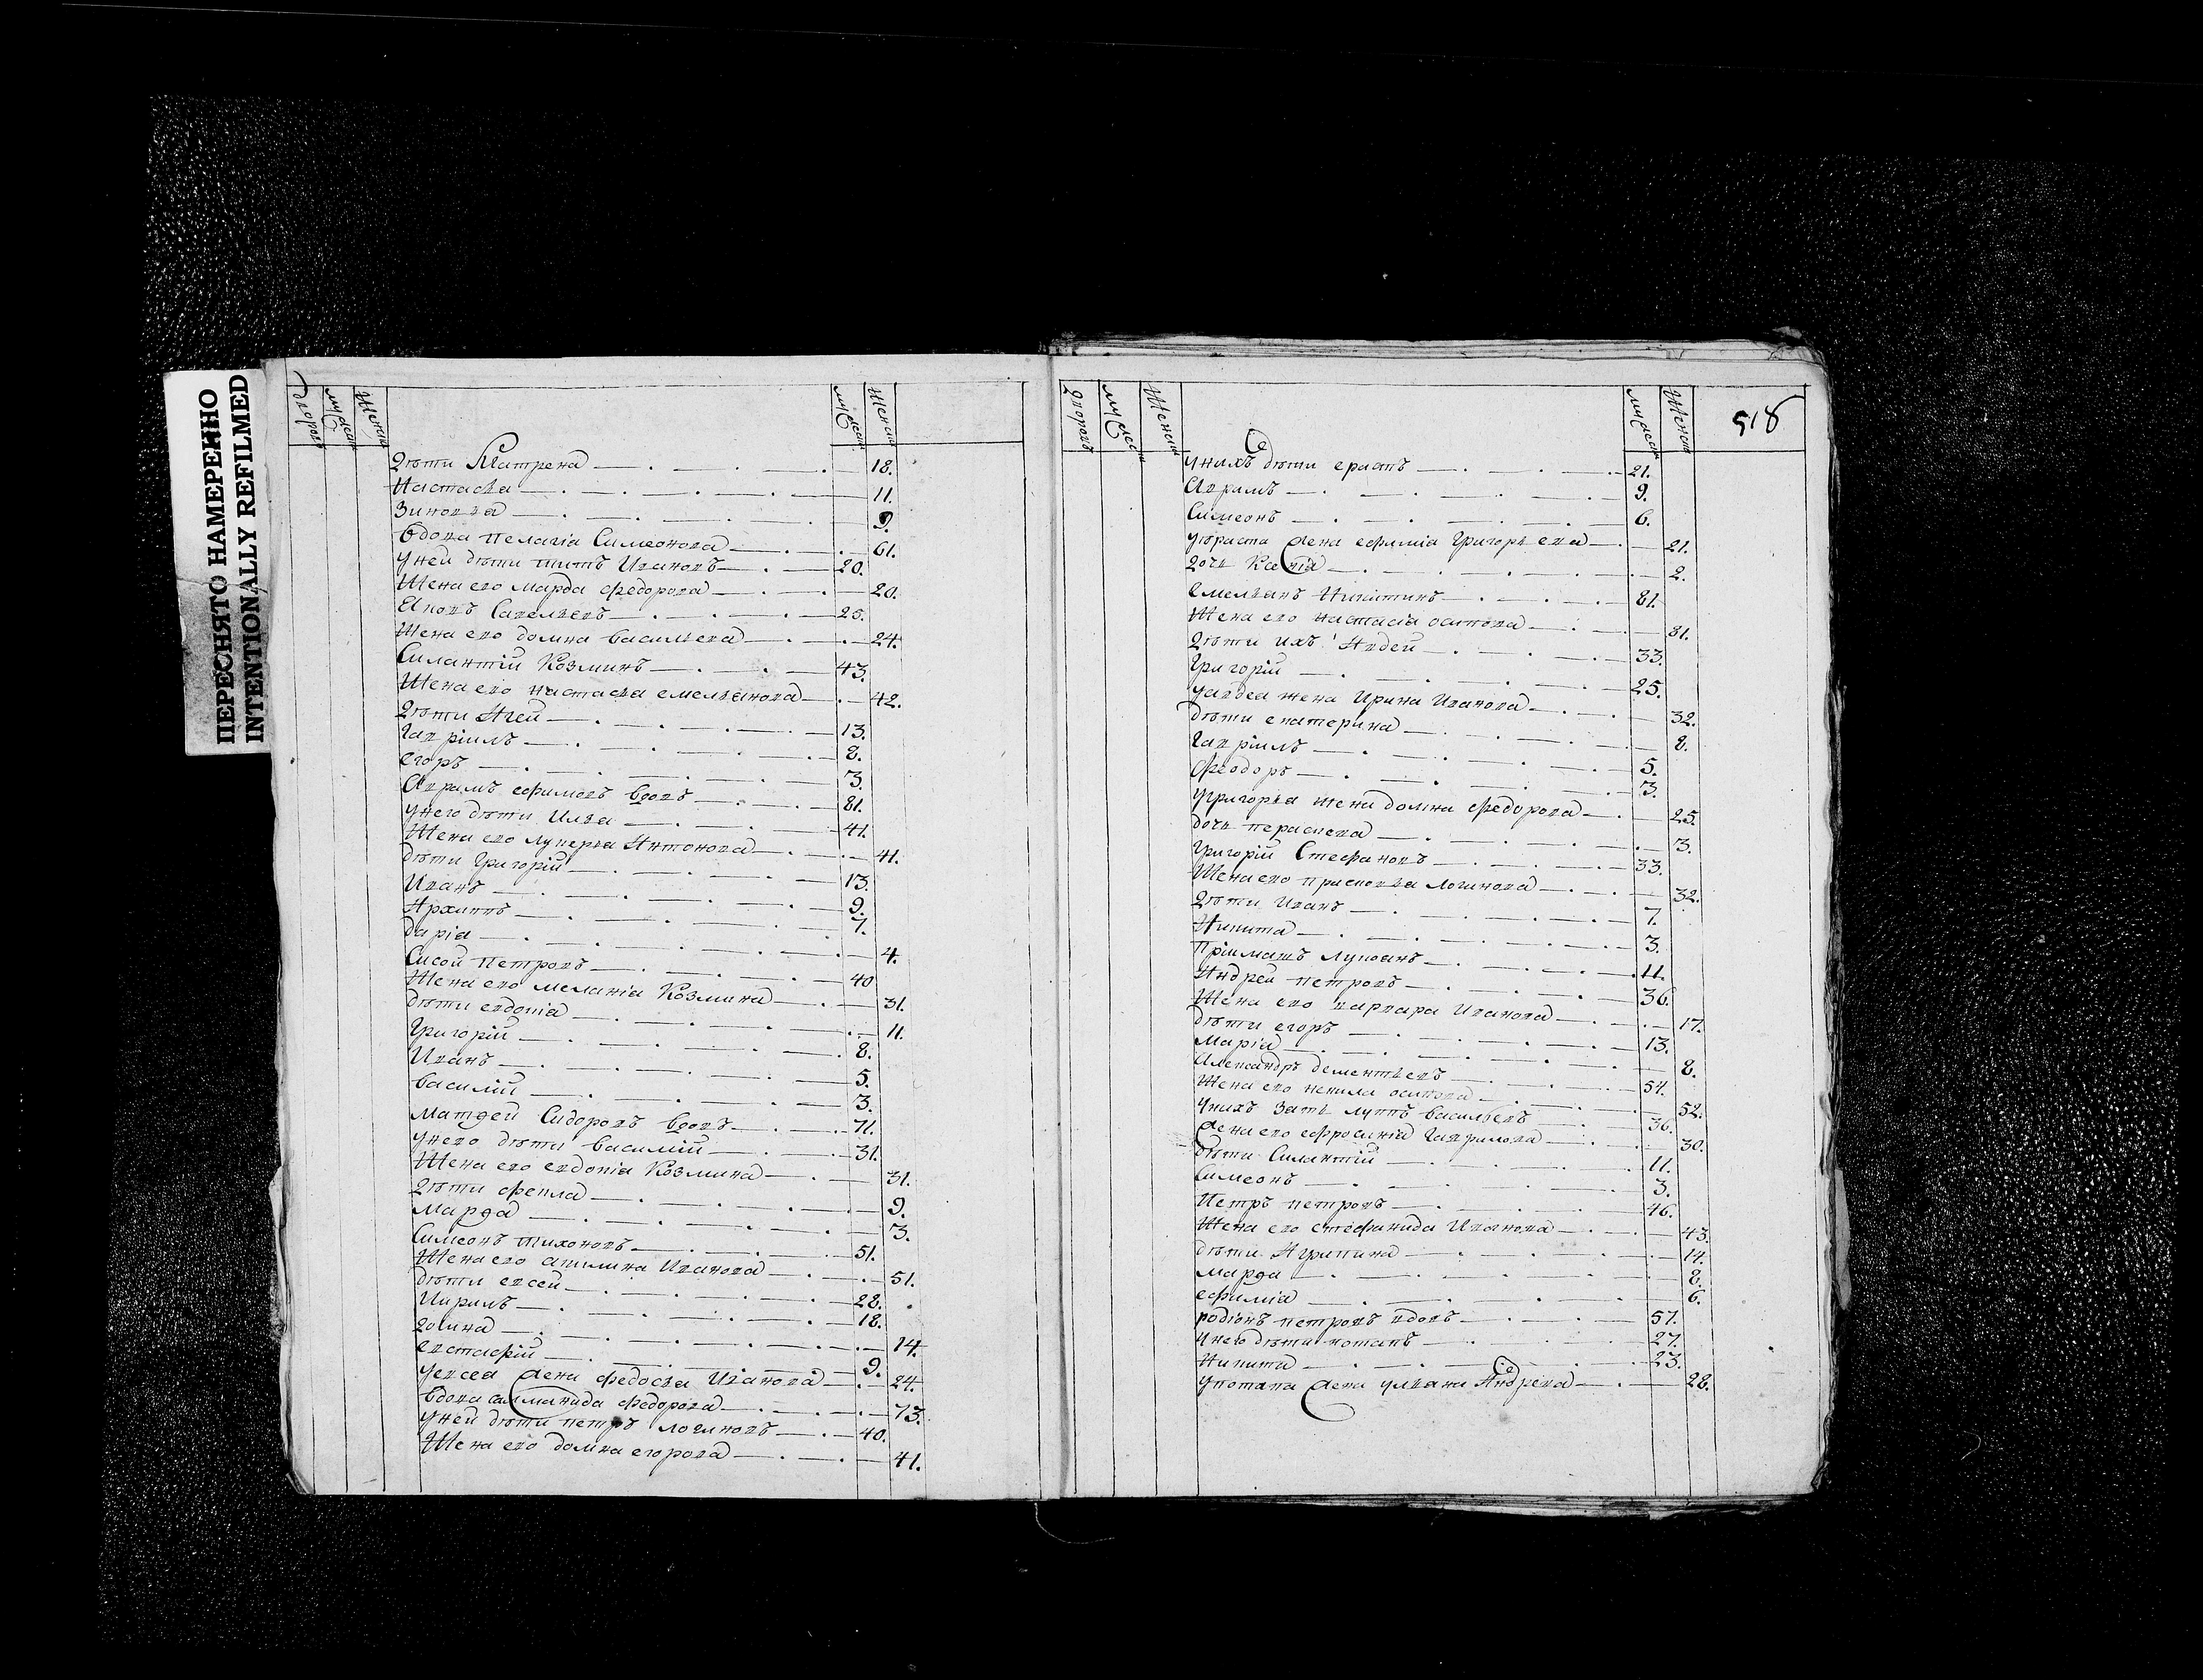 ПЕРЕСНЯТО НАМЕРЕННО
INTENTIONALLY REFILMED
дворовъ
мужеск
женски
мужеск
женски
дѣти Матрена 18.
Настасья 11.
Зиновья 9.
вдова пелагіа Симеонова 61.
у ней дѣти титъ Ивановъ 20.
Жена его марѳа федорова 20.
Савельевъ 25.
Жена его домна васильева 24.
Силантій Козминъ 43.
Жена его настасья емельянова 42.
дѣти Агей 13.
гавріилъ 8.
егоръ 3.
Аврамъ ефимовъ вдовъ 81.
у него дѣти Илья 41.
Жена его лукерья Антонова 41.
дѣти григорій 13.
Иванъ 9.
Архиппъ 7.
даріа 4.
Сисой петровъ 40
Жена его меланіа Козмина 31.
дѣти евдокіа 11.
григорій 8.
Иванъ 5.
василій 3.
матѳей Сидоровъ вдовъ 71.
у него дѣти василій 31.
Жена его евдокіа Козмина 31.
дѣти фекла 9.
марѳа 3.
Симеонъ тихоновъ 51.
Жена его акилина Иванова 51.
дѣти евсей 28.
Кирилъ 18.
домна 14.
евстафій 9.
у евсея жена федосья Иванова 24.
вдова саламанида федорова 73.
у ней дѣти петръ логиновъ 40.
Жена его домна егорова 41.
дворовъ
мужеск
женски
мужеск
женски
518
у нихъ дѣти ерастъ 21.
Аврамъ 9.
Симеонъ 6.
у ераста жена ефиміа григорьева 21.
дочь 2.
емельянъ Никитинъ 81.
Жена его настасіа осипова 81.
дѣти ихъ Авдей 33.
григорій 25.
у авдея жена Ирина Иванова 32.
дѣти екатерина 8.
гавріилъ 5.
феодоръ 3.
у григорья жена домна федорова 25.
дочь параскева 3.
григорій Стефановъ 33.
Жена его прасковья логинова 32.
дѣти Иванъ 7.
Никита 3.
пріимашъ лукоанъ 11.
Андрей петровъ 36.
Жена его варвара Иванова 17.
дѣти егоръ 13.
маріа 8.
Александръ дементьевъ 54.
Жена его ненила осипова 52.
у нихъ зять луппъ васильевъ 36.
жена его ефросиніа гаврилова 30.
дѣти Силантій 11.
Симеонъ 3.
Петръ петровъ 46.
Жена его стефанида Иванова 43.
дѣти Агрипина 14.
марѳа 8.
ефиміа 6.
родіонъ петровъ вдовъ 57.
у него дѣти потапъ 27.
Никита 23.
у потапа жена ульана Андреева 28.